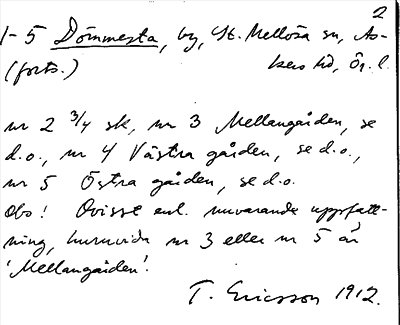 2
1-5 Dömmesta, by, St. Mellösa sn, As-
(forts.) kers hd, Ör. l.
nr 2 3/4 sk, nr 3 Mellangården, se
d.o., nr 4 Västra gården, se d.o.,
nr 5 Östra gården, se d.o.
Obs! Ovisst enl. nuvarande uppfatt-
ning, huruvida nr 3 eller nr 5 är
'Mellangården'.
T. Ericsson 1912.